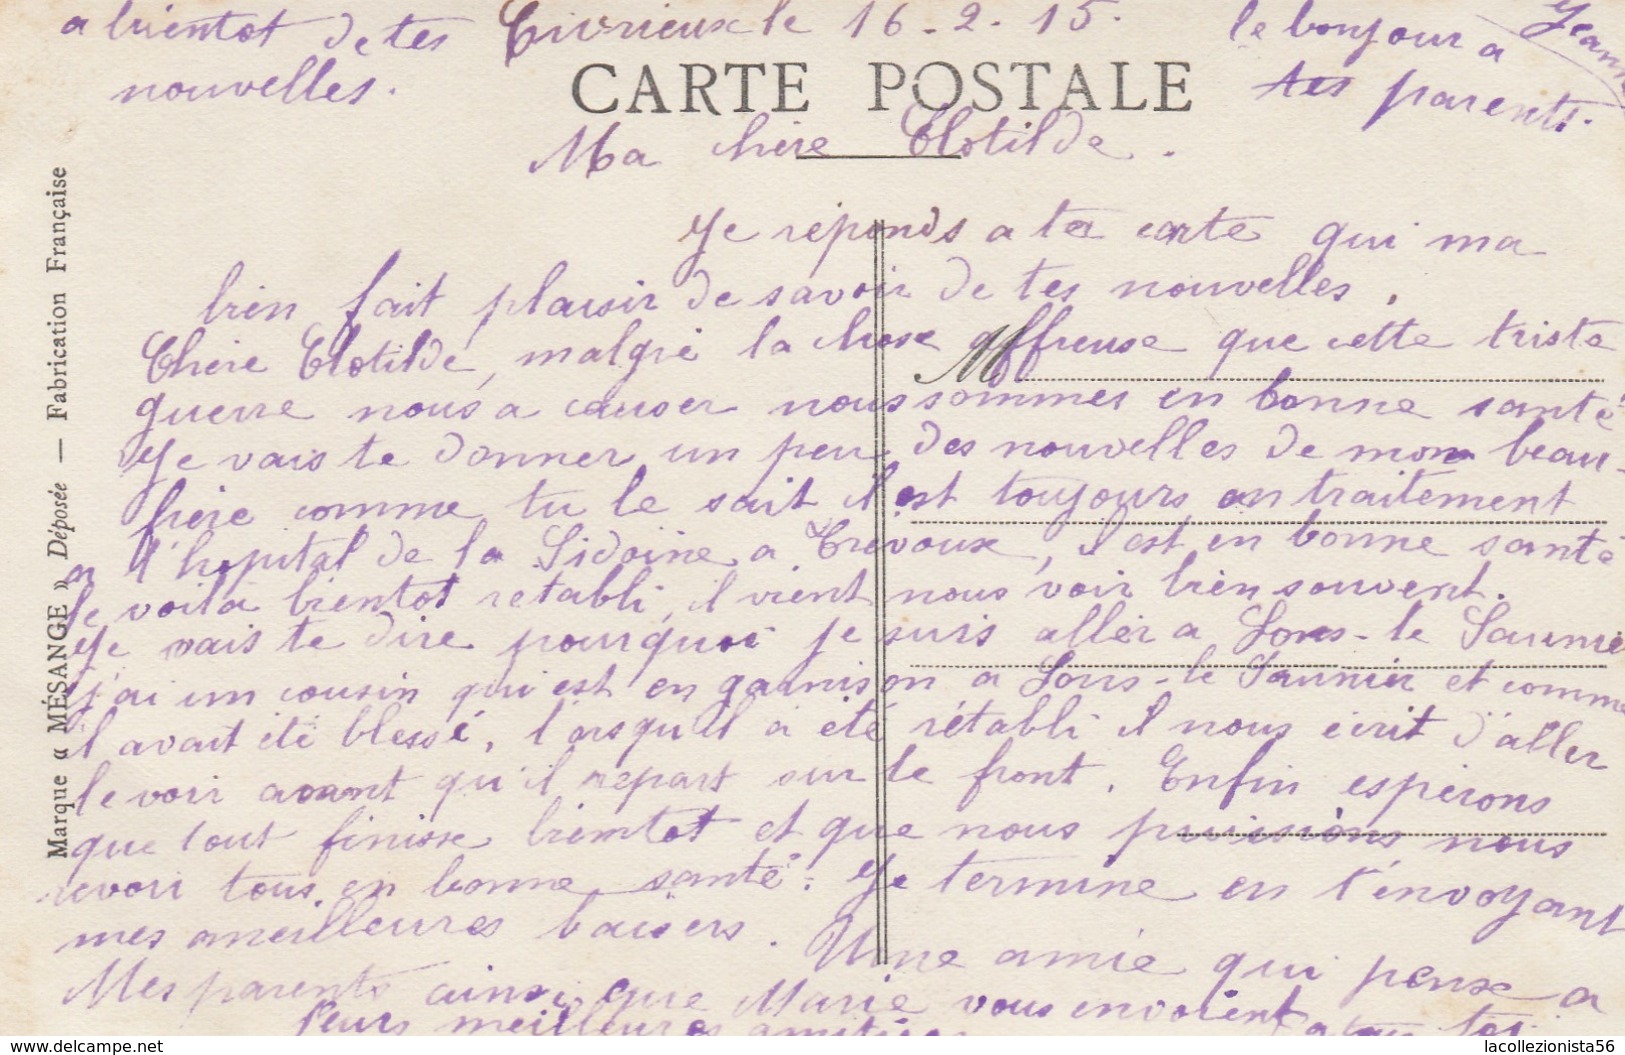 a bientot de tes
nouvelles.
Civrieux le 16-2-15.
le bonjour a
tes parents.
CARTE POSTALE
Ma chere Clotilde.
Je réponds a ta carte qui ma
bien fait plaisir de savoir de tes nouvelles,
Chère Clotilde, malgré la chose affreuse que cette triste
guerre nous a causer nous sommes en bonne santé
Je vais te donner un peu des nouvelles de mon beau-
frère comme tu le sait il est toujours en traitement
a l'hopital de la Sidoine a Trévoux, il est en bonne santé
le voila bientot retabli, il vient nous voir bien souvent.
Je vais te dire pourquoi je suis aller a Lons-le Saunier
j'ai un cousin qui est en garnison a Lons-le Saunier et comme
il avait été blessé, lorsqu'il a été rétabli il nous écrit d'aller
le voir avant qu'il repart sur le front. Enfin espérons
que tout finisse bientot et que nous puissions nous
revoir tous en bonne santé. Je termine en t'envoyant
mes meilleures baisers. Une amie qui pense a
toi
Mes parents ainsi que Marie vous envoient
leurs meilleures amitiés
Marque « MÉSANGE » Déposée — Fabrication Française
www.delcampe.net
lacollezionista56